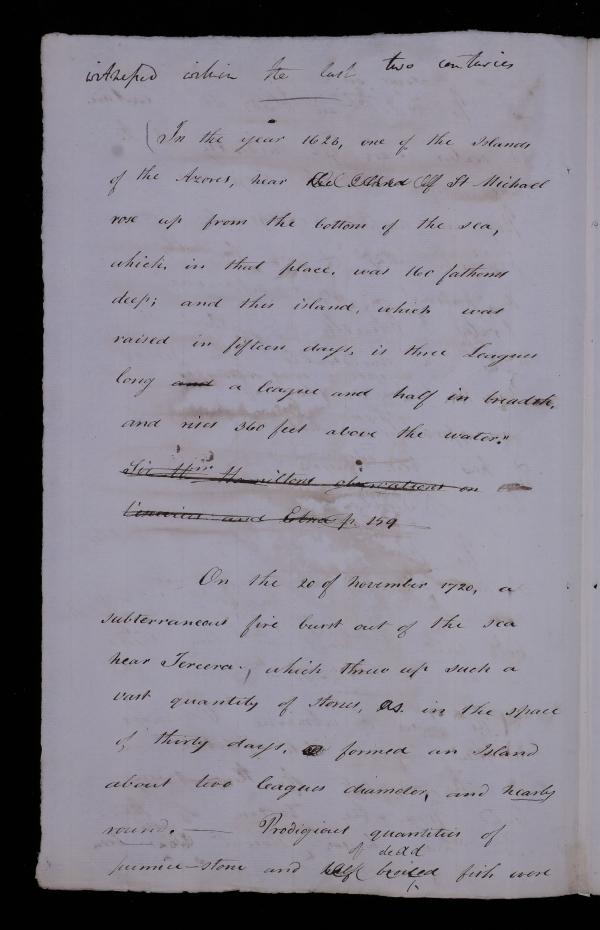 witnessed within the last two centuries
(In the year 1628, one of the Islands
of the Azores, near Off St Michael
rose up from the bottom of the sea,
which, in that place, was 160 fathoms
deep; and this island, which was
raised in fifteen days, is three Leagues
long and a league and half in breadth,
and rises 360 feet above the water."
Sir Wm Hamiltons observations on
Vesuvius and Etna p. 159
On the 20 of November 1720, a
subterraneous fire burst out of the sea
near Tercera, which threw up such a
vast quantity of stones, as in the space
of thirty days, formed an Island
about two leagues diameter, and nearly
round. — Prodigious quantities of
of dead
pumice-stone and half broiled fish were